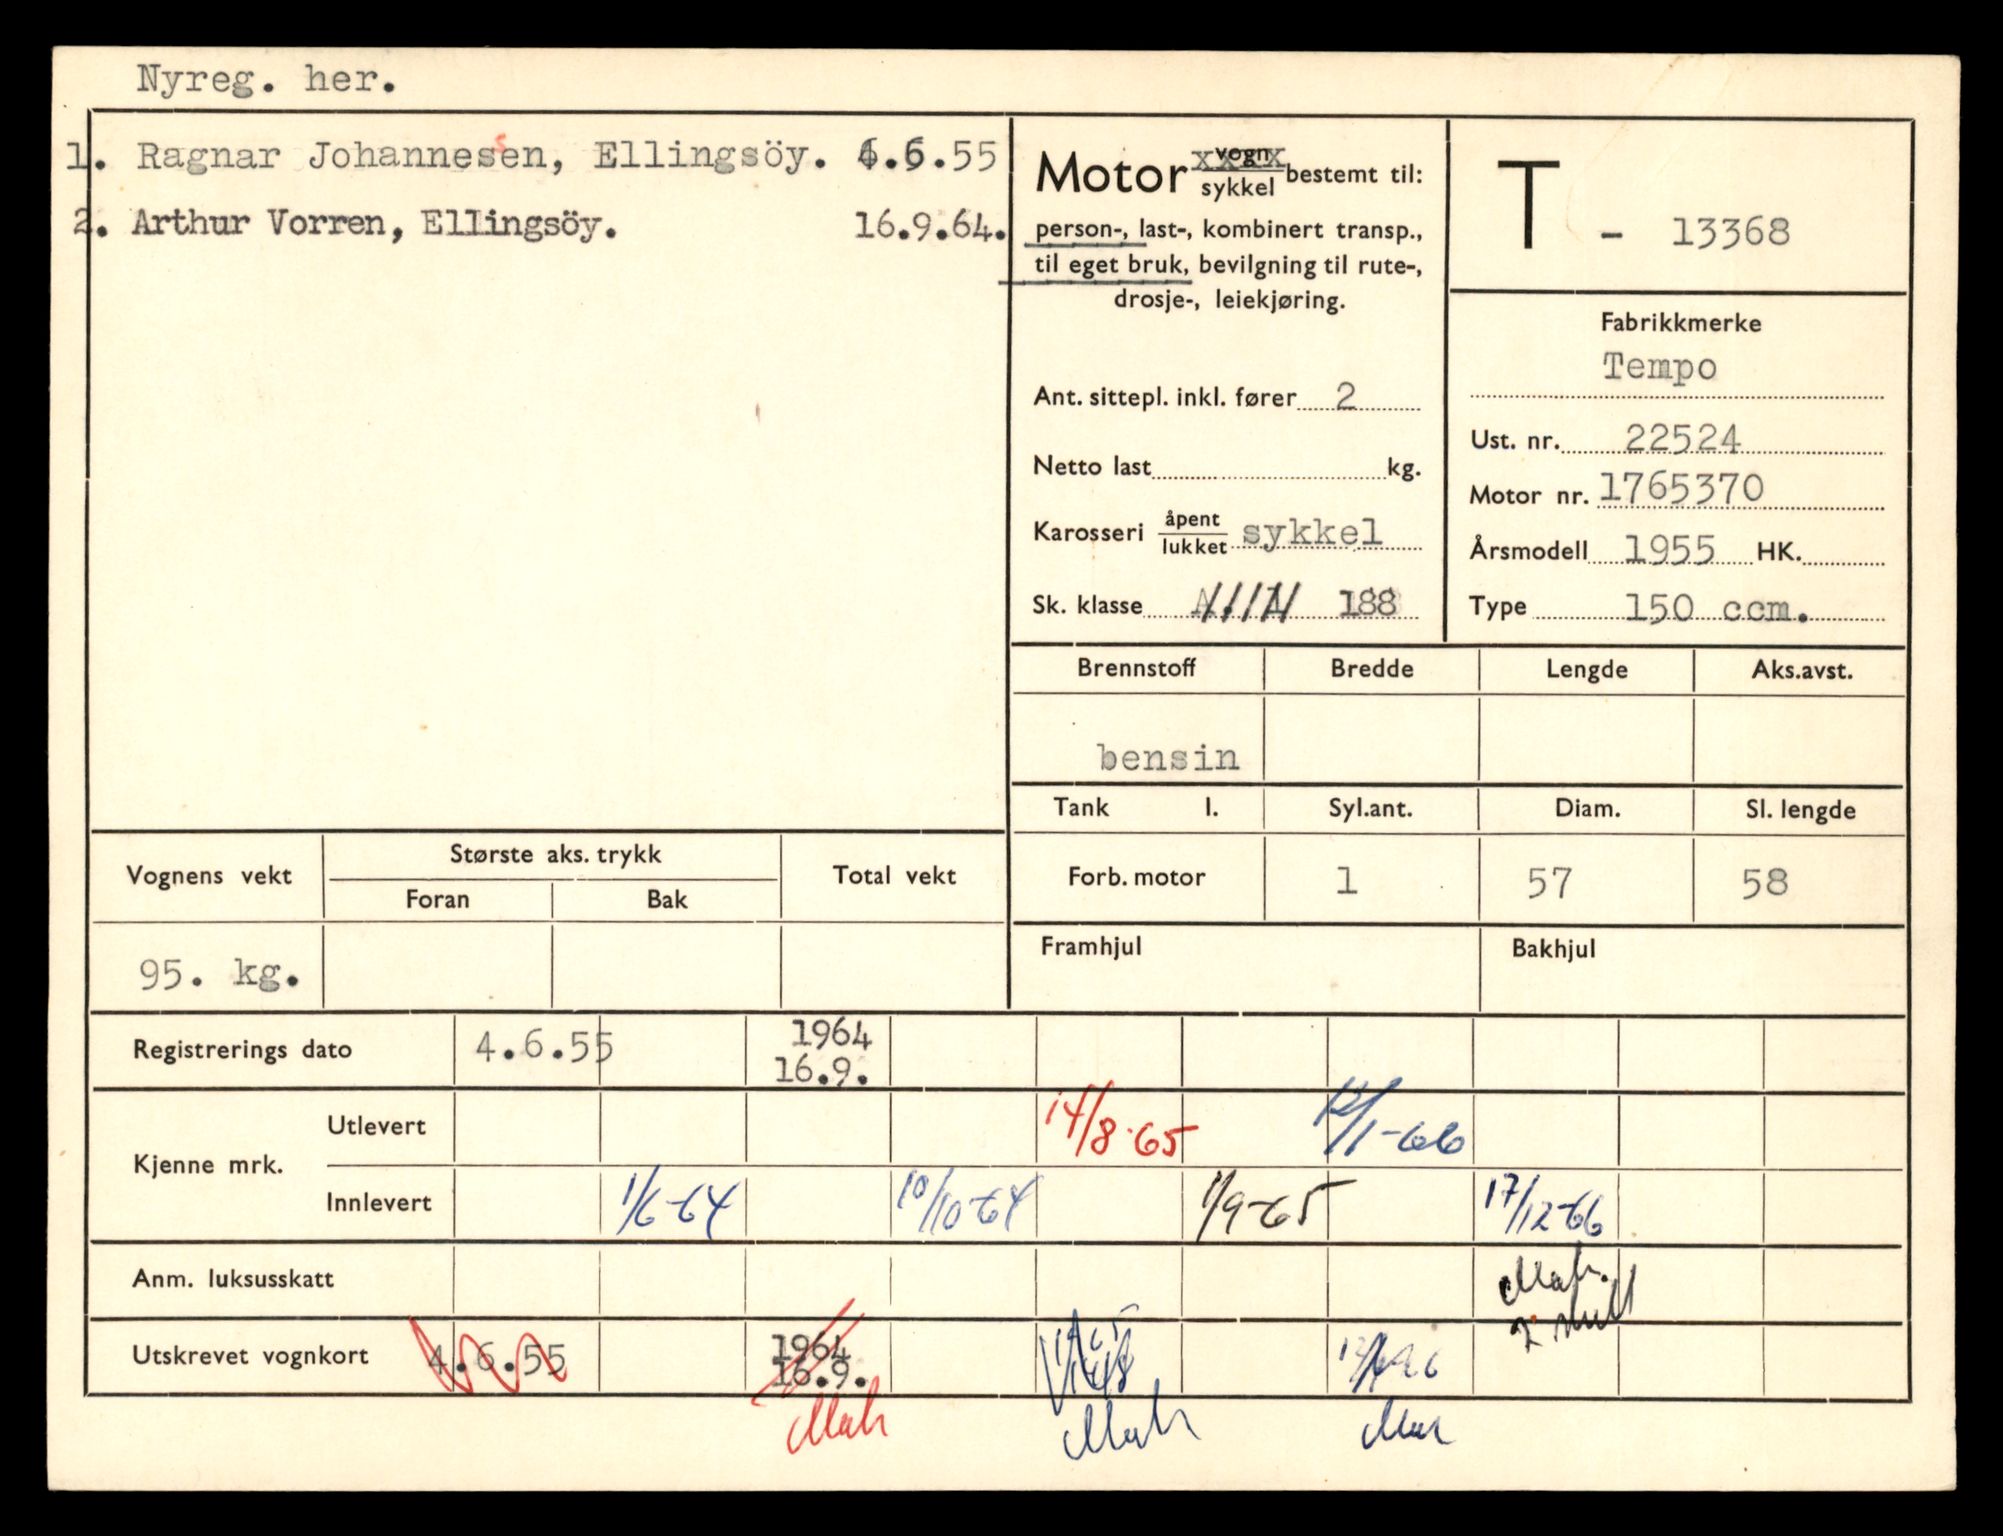 Nyreg. her.
1. Ragnar Johannessen, Ellingsöy. 4.6.55
2. Arthur Vorren, Ellingsöy. 16.9.64.
Motor vogn/sykkel bestemt til:
person-, last-, kombinert transp.,
til eget bruk, bevilgning til rute-,
drosje-, leiekjøring.
Ant. sittepl. inkl. fører 2
Netto last kg.
Karosseri åpent/lukket sykkel
Sk. klasse 188
T - 13368
Fabrikkmerke
Tempo
Ust. nr. 22524
Motor nr. 1765370
Årsmodell 1955 HK.
Type 150 ccm.
Brennstoff Bredde Lengde Aks.avst.
bensin
Tank l. Syl.ant. Diam. Sl. lengde
Forb. motor 1 57 58
Framhjul Bakhjul
Vognens vekt Største aks. trykk Total vekt
Foran Bak
95. kg.
Registrerings dato 4.6.55 1964 16.9.
Kjenne mrk.
Utlevert 14/8-65 12/1-66
Innlevert 1/6-64 10/10-64 1/9-65 17/12-66
Anm. luksusskatt
Utskrevet vognkort 4.6.55 1964 16.9.